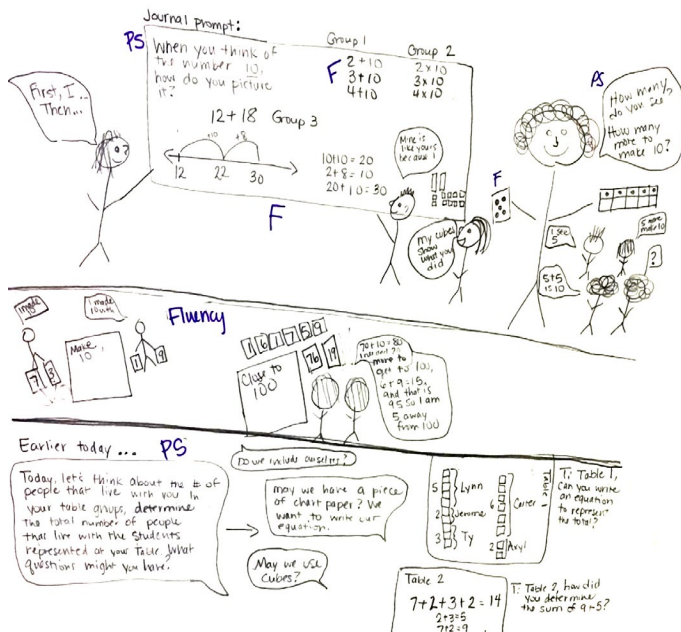 Journal prompt:
PS
When you think of
the number 10,
how do you picture
it?
Group 1
F
2+10
3+10
4+10
Group 2
2x10
3x10
4x10
First, I...
Then...
12+18 Group 3
+10
+8
12
22
30
10+10=20
2+8=10
20+10=30
F
Mine is
like yours
because I
My cubes
show
what you
did
PS
How many
do you see
How many
more to
make 10?
F
I see
5
5 more
make 10
5+5
is 10
?
Fluency
I made
I made
10 with
Make
10
7
3
1
9
1 6 1 7 5 9
76
19
Close to
100
more to
get to 100,
6+9=15,
and that is
95 so I am
5 away
from 100
Earlier today... PS
Today, let's think about the # of
people that live with you. In
your table groups, determine
the total number of people
that live with the students
represented at your table. What
questions might you have?
Do we include ourselves?
May we have a piece
of chart paper? We
want to write our
equation.
May we use
cubes?
Table 1
5 Lynn
2 Jerome
3 Ty
6 Carter
2
T: Table 1,
can you write
an equation
to represent
the total?
Table 2
7+2+3+2=14
2+3=5
7+2=9
T: Table 2, how did
you determine
the sum of 9+5?